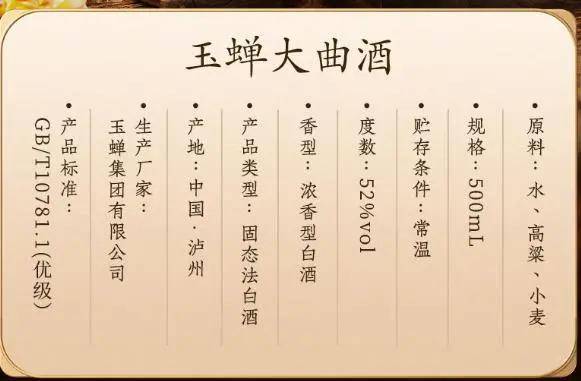 玉蝉大曲酒
原料：水、高粱、小麦
规格：500mL
贮存条件：常温
度数：52%vol
香型：浓香型白酒
产品类型：固态法白酒
产地：中国·泸州
生产厂家：
玉蝉集团有限公司
产品标准：
GB/T10781.1(优级)